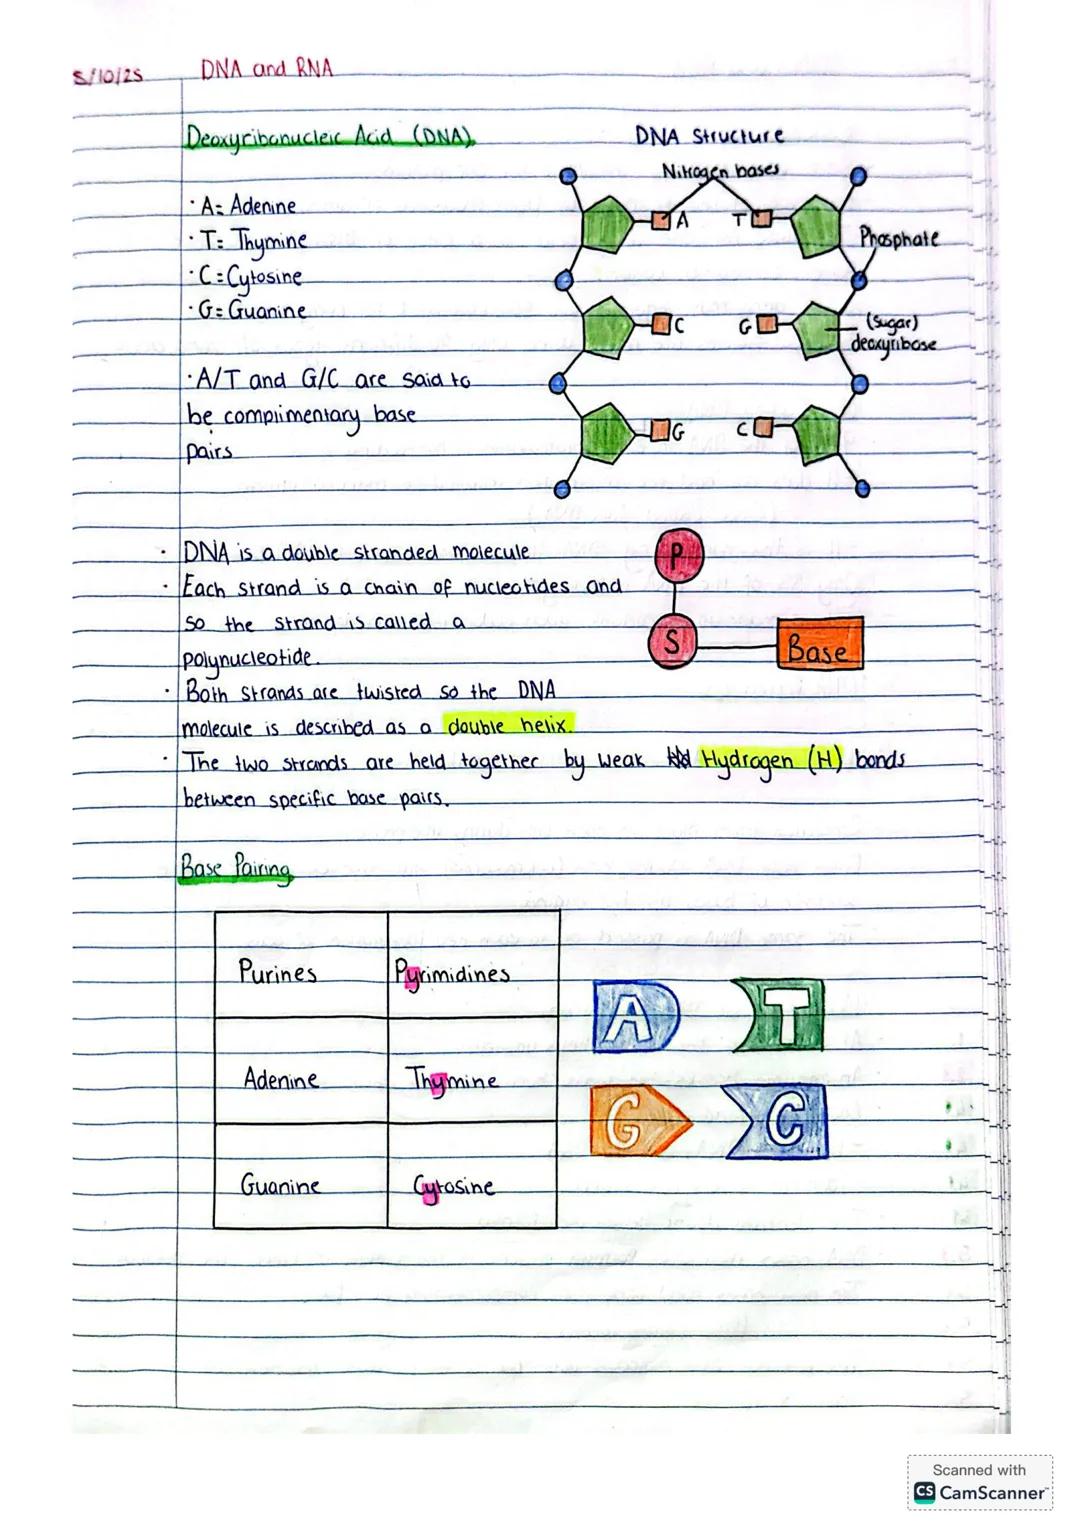 5/10/25 DNA and RNA
Deoxyribonucleic Acid (DNA).
· A= Adenine
· T= Thymine
· C= Cytosine
· G= Guanine
· A/T and G/C are said to
be complimentary base
pairs
DNA Structure
Nitrogen bases
A T
Phosphate
C G
(Sugar)
deoxyribose
G C
· DNA is a double stranded molecule
· Each strand is a chain of nucleotides and
so the strand is called a
polynucleotide.
· Both strands are twisted so the DNA
molecule is described as a double helix.
· The two strands are held together by weak Hydrogen (H) bonds
between specific base pairs.
P
S Base
Base Pairing
Purines Pyrimidines
Adenine Thymine
Guanine Cytosine
A T
G C
Scanned with
CS CamScanner